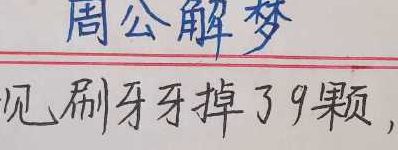 周公解梦
见刷牙牙掉了9颗,